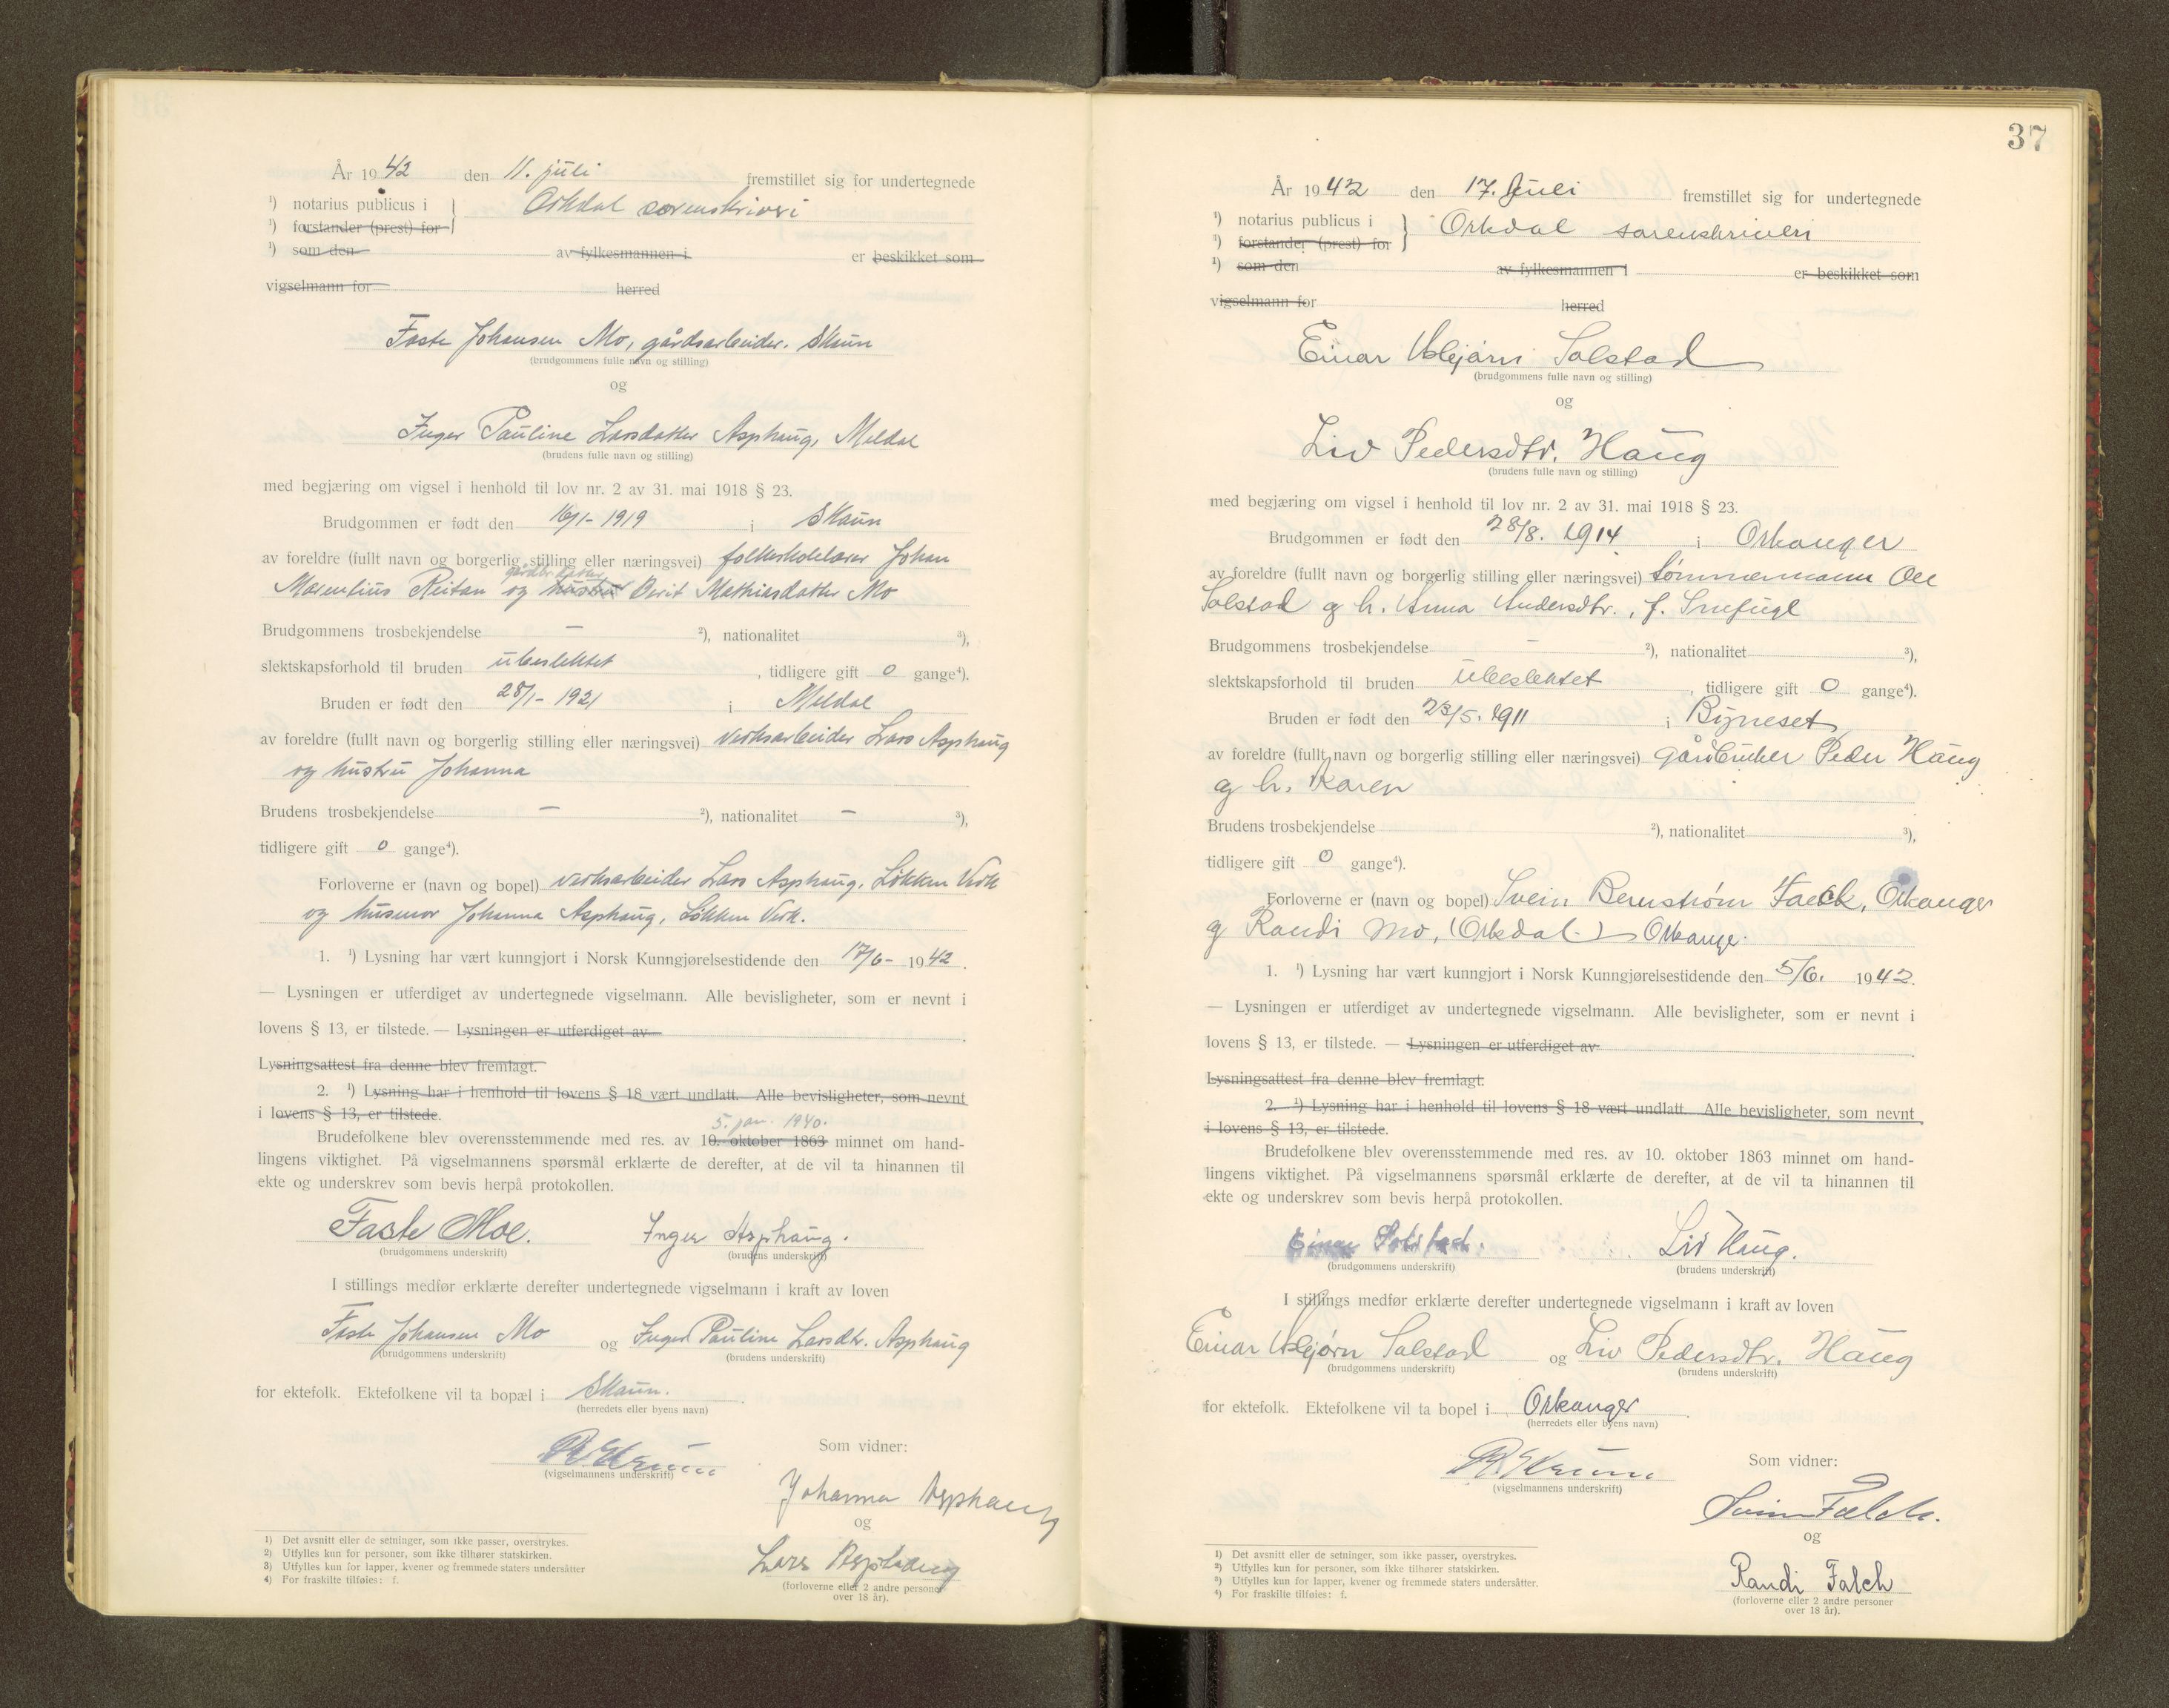 År 1942 den 11. juli fremstillet sig for undertegnede
¹) notarius publicus i } Orkdal sorenskriveri
¹) forstander (prest) for
¹) som den av fylkesmannen i er beskikket som
vigselmann for herred
Faste Johansen Mo, gårdsarbeider. Skaun
(brudgommens fulle navn og stilling)
og
Inger Pauline Larsdatter Asphaug, Meldal
(brudens fulle navn og stilling)
med begjæring om vigsel i henhold til lov nr. 2 av 31. mai 1918 § 23.
Brudgommen er født den 16/1- 1919 i Skaun
av foreldre (fullt navn og borgerlig stilling eller næringsvei) folkeskolelærer Johan
Marenlius Reitan og hustru Berit Mathiasdatter Mo
Brudgommens trosbekjendelse — ²), nationalitet ³),
slektskapsforhold til bruden ubeslektet , tidligere gift 0 gange⁴).
Bruden er født den 28/1- 1921 i Meldal
av foreldre (fullt navn og borgerlig stilling eller næringsvei) verksarbeider Lars Asphaug
og hustru Johanna
Brudens trosbekjendelse — ²), nationalitet — ³),
tidligere gift 0 gange⁴).
Forloverne er (navn og bopel) verksarbeider Lars Asphaug, Løkken Verk
og husmor Johanna Asphaug, Løkken Verk.
1. ¹) Lysning har vært kunngjort i Norsk Kunngjørelsestidende den 17/6- 1942.
— Lysningen er utferdiget av undertegnede vigselmann. Alle bevisligheter, som er nevnt i
lovens § 13, er tilstede. — Lysningen er utferdiget av
Lysningsattest fra denne blev fremlagt.
2. ¹) Lysning har i henhold til lovens § 18 vært undlatt. Alle bevisligheter, som nevnt
i lovens § 13, er tilstede.
5. jan. 1940.
Brudefolkene blev overensstemmende med res. av 10. oktober 1863 minnet om hand-
lingens viktighet. På vigselmannens spørsmål erklærte de derefter, at de vil ta hinannen til
ekte og underskrev som bevis herpå protokollen.
Faste Moe. Inger Asphaug.
(brudgommens underskrift) (brudens underskrift)
I stillings medfør erklærte derefter undertegnede vigselmann i kraft av loven
Faste Johansen Mo og Inger Pauline Larsdtr. Asphaug
(brudgommens underskrift) (brudens underskrift)
for ektefolk. Ektefolkene vil ta bopæl i Skaun.
(herredets eller byens navn)
Som vidner:
(vigselmannens underskrift)
Johanna Asphaug
og
Lars Asphaug
(forloverne eller 2 andre personer
over 18 år).
1) Det avsnitt eller de setninger, som ikke passer, overstrykes.
2) Utfylles kun for personer, som ikke tilhører statskirken.
3) Utfylles kun for lapper, kvener og fremmede staters undersåtter
4) For fraskilte tilføies: f.
37
År 1942 den 17. Juli fremstillet sig for undertegnede
¹) notarius publicus i } Orkdal sorenskriveri
¹) forstander (prest) for
¹) som den av fylkesmannen i er beskikket som
vigselmann for herred
Einar Asbjørn Solstad
(brudgommens fulle navn og stilling)
og
Liv Pedersdtr. Haug
(brudens fulle navn og stilling)
med begjæring om vigsel i henhold til lov nr. 2 av 31. mai 1918 § 23.
Brudgommen er født den 28/8. 1914 i Orkanger
av foreldre (fullt navn og borgerlig stilling eller næringsvei) tømmermann Ole
Solstad og h. Anna Andersdtr., f. Snefugl
Brudgommens trosbekjendelse — ²), nationalitet ³),
slektskapsforhold til bruden ubeslektet , tidligere gift 0 gange⁴).
Bruden er født den 23/5. 1911 i Byneset
av foreldre (fullt navn og borgerlig stilling eller næringsvei) gårdbruker Peder Haug
og h. Karen
Brudens trosbekjendelse ²), nationalitet ³),
tidligere gift 0 gange⁴).
Forloverne er (navn og bopel) Svein Bernstrøm Falck, Orkanger
og Randi Mo, (Orkdal.) Orkanger.
1. ¹) Lysning har vært kunngjort i Norsk Kunngjørelsestidende den 5/6. 1942.
— Lysningen er utferdiget av undertegnede vigselmann. Alle bevisligheter, som er nevnt i
lovens § 13, er tilstede. — Lysningen er utferdiget av
Lysningsattest fra denne blev fremlagt.
2. ¹) Lysning har i henhold til lovens § 18 vært undlatt. Alle bevisligheter, som nevnt
i lovens § 13, er tilstede.
Brudefolkene blev overensstemmende med res. av 10. oktober 1863 minnet om hand-
lingens viktighet. På vigselmannens spørsmål erklærte de derefter, at de vil ta hinannen til
ekte og underskrev som bevis herpå protokollen.
Einar Solstad. Liv Haug.
(brudgommens underskrift) (brudens underskrift)
I stillings medfør erklærte derefter undertegnede vigselmann i kraft av loven
Einar Asbjørn Solstad og Liv Pedersdtr. Haug
(brudgommens underskrift) (brudens underskrift)
for ektefolk. Ektefolkene vil ta bopel i Orkanger
(herredets eller byens navn)
Som vidner:
(vigselmannens underskrift)
Svein Falch.
og
Randi Falch
(forloverne eller 2 andre personer
over 18 år).
1) Det avsnitt eller de setninger, som ikke passer, overstrykes.
2) Utfylles kun for personer, som ikke tilhører statskirken.
3) Utfylles kun for lapper, kvener og fremmede staters undersåtter.
4) For fraskilte tilføies: f.